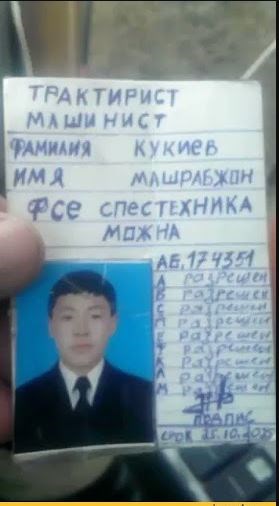 ТРАКТИРИСТ
МАШИНИСТ
ФАМИЛИЯ КУКИЕВ
ИМЯ МАШРАБЖОН
ФСЕ СПЕСТЕХНИКА
МОЖНА
АБ, 174351
А разрешен
В разрешен
С разрешен
разрешен
Е разрешен
разрешен
разрешен
А разрешен
М разрешен
ПОДПИС
СРОК 25.10.